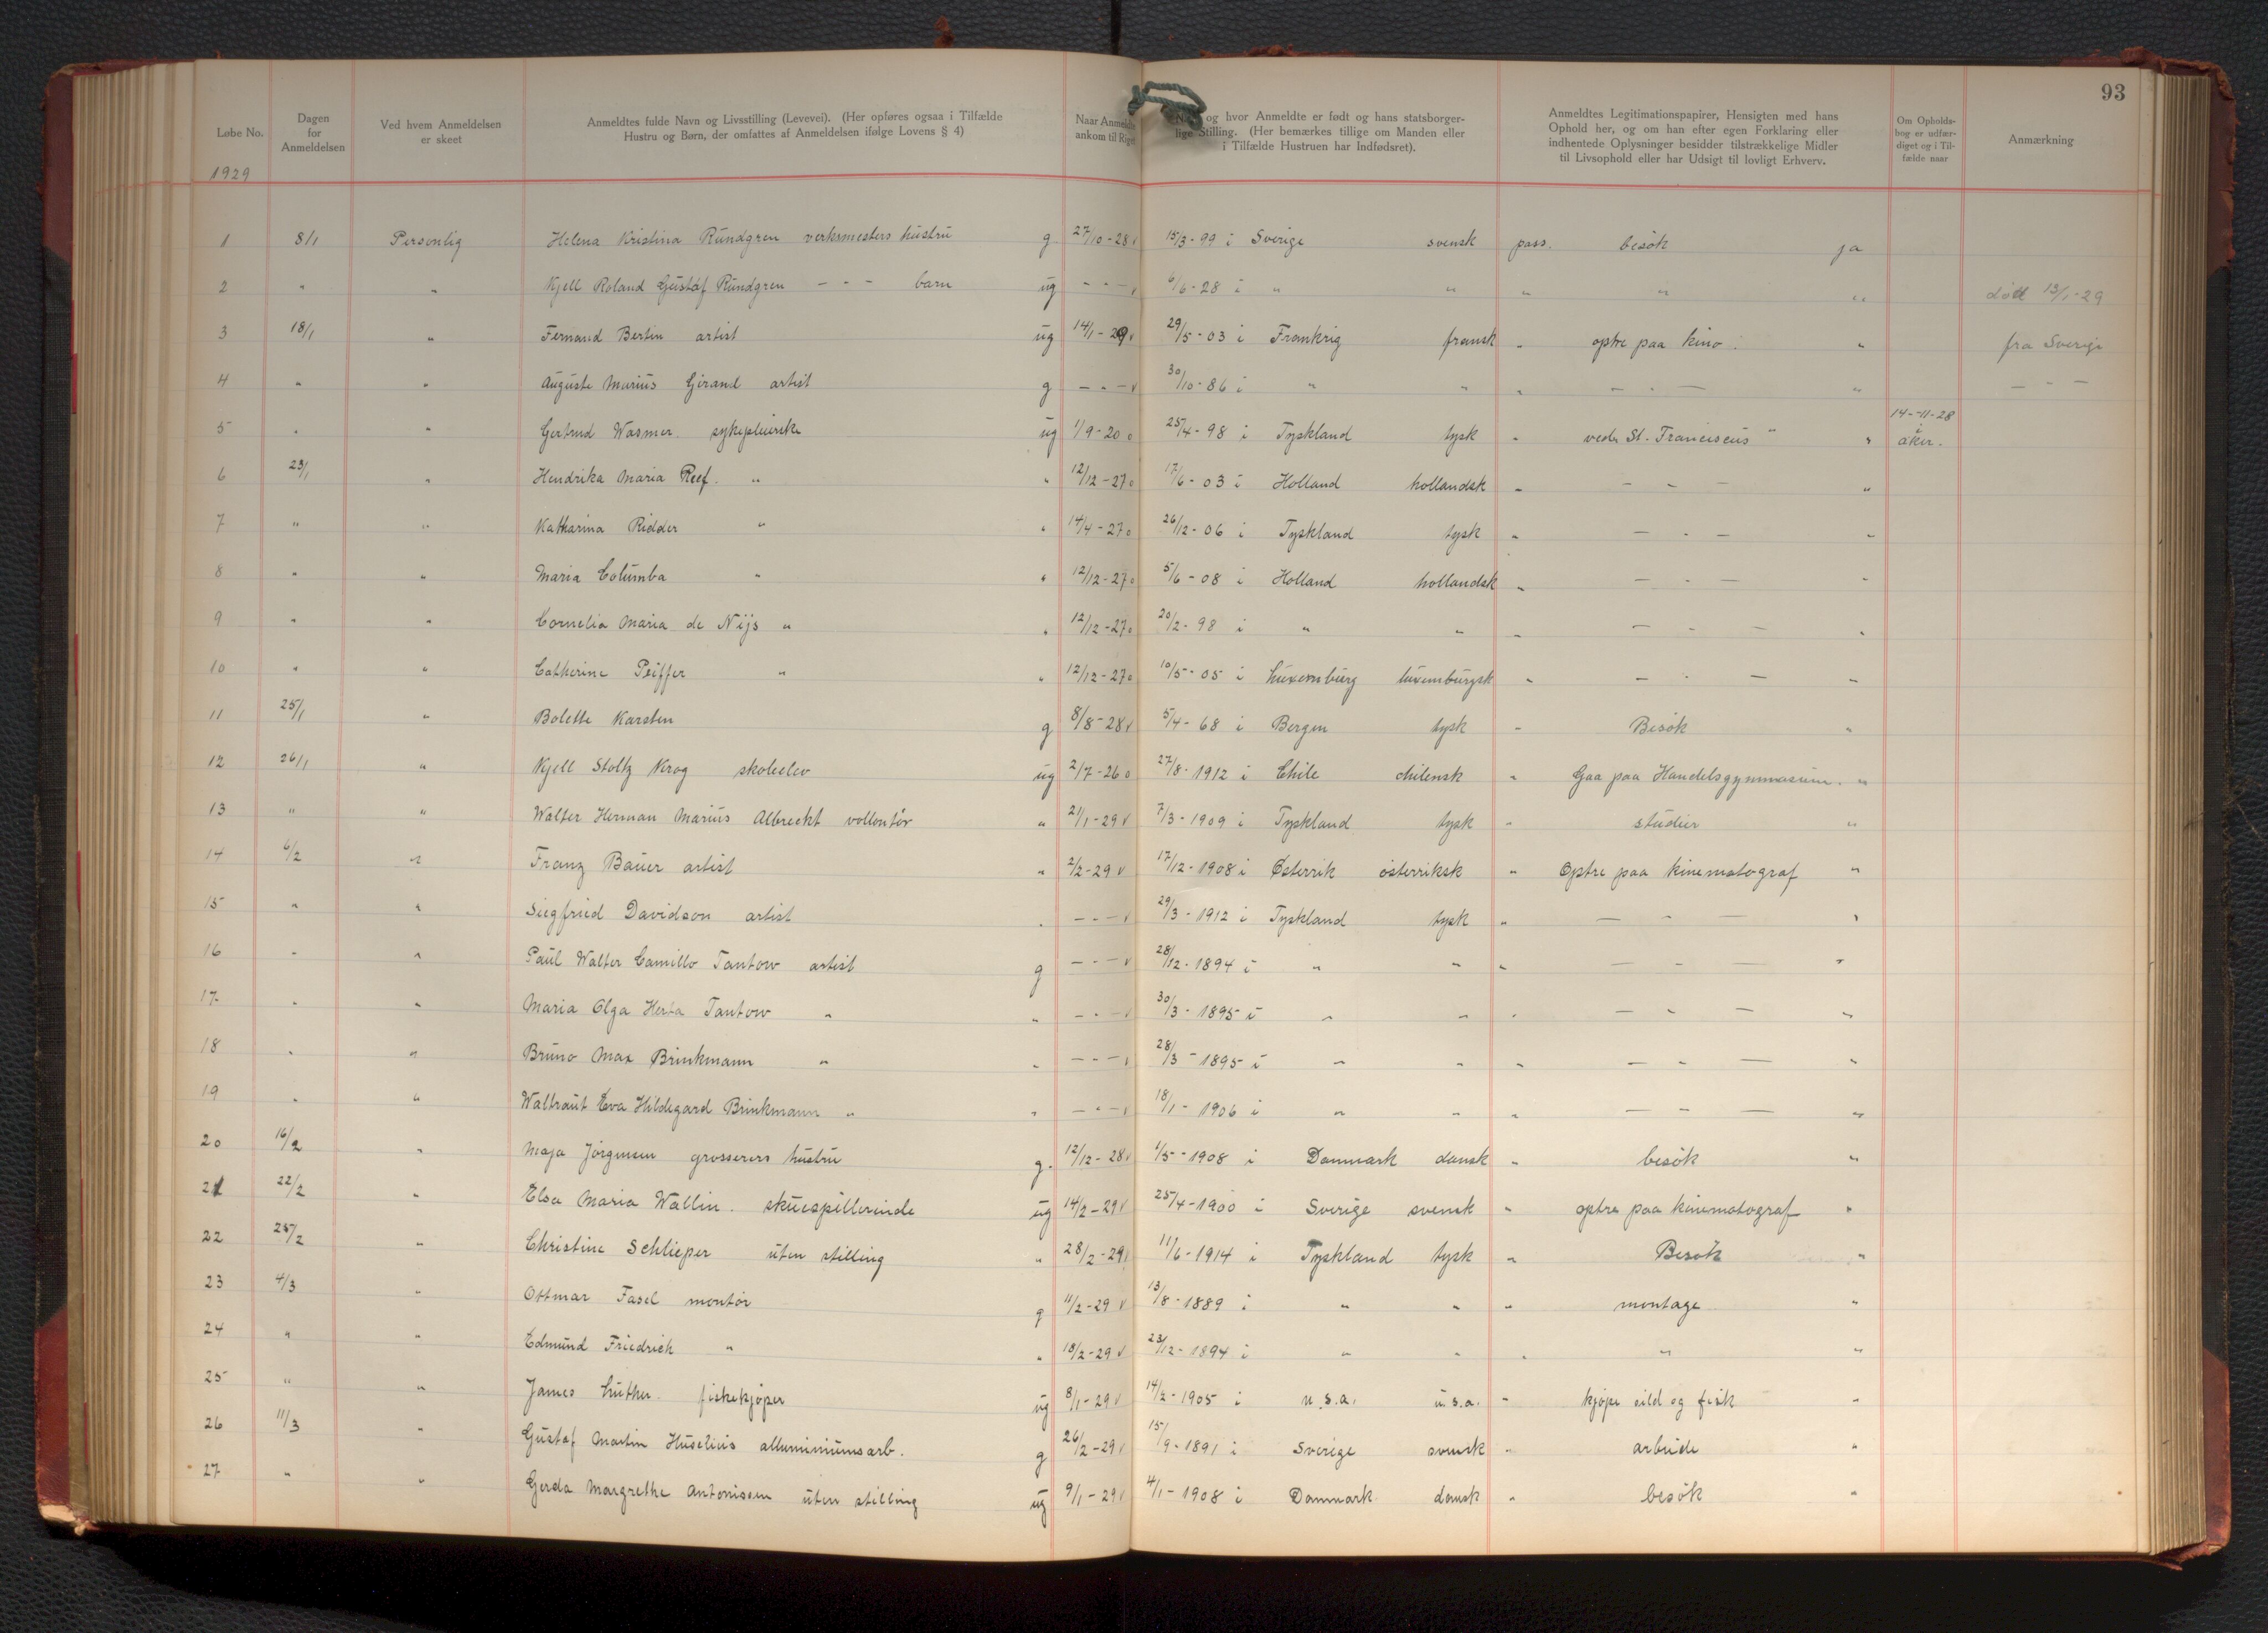 93
Løbe No.
Dagen for Anmeldelsen
Ved hvem Anmeldelsen er skeet
Anmeldtes fulde Navn og Livsstilling (Levevei). (Her opføres ogsaa i Tilfælde Hustru og Børn, der omfattes af Anmeldelsen ifølge Lovens § 4)
Naar Anmeldte ankom til Riget
og hvor Anmeldte er født og hans statsborgerlige Stilling. (Her bemærkes tillige om Manden eller i Tilfælde Hustruen har Indfødsret).
Anmeldtes Legitimationspapirer, Hensigten med hans Ophold her, og om han efter egen Forklaring eller indhentede Oplysninger besidder tilstrækkelige Midler til Livsophold eller har Udsigt til lovligt Erhverv.
Om Opholdsbog er udfærdiget og i Tilfælde naar
Anmærkning
1929
1 8/1 Personlig Helena Kristina Rundgren verksmesters hustru g. 27/10-28 v 15/3-99 i Sverige svensk pass. besök ja
2 " " Kjell Roland Gustaf Rundgren - - - barn ug - - - v 6/6-28 i " " " " " død 13/1-29
3 18/1 " Fernand Bertin artist ug 14/1-29 v 29/5-03 i Frankrig fransk " optre paa kino. " fra Sverige
4 " " Auguste Marius Girand artist g - " - v 30/10-86 i " " " - " - " - " -
5 " " Gertrud Wasmer. sykepleierske ug 1/9-20 o 25/4-98 i Tyskland tysk " ved St. Franciscus " " 14-11-28 i aker.
6 23/1 " Hendrika Maria Reef. " " 12/12-27 o 17/6-03 i Holland hollandsk " - " - "
7 " " Katharina Ridder " " 14/4-27 o 26/12-06 i Tyskland tysk " - " - "
8 " " Maria Columba " " 12/12-27 o 5/6-08 i Holland hollandsk " - " - "
9 " " Cornelia Maria de Nijs " " 12/12-27 o 20/2-98 i " " " - " - "
10 " " Catherine Peiffer " " 12/12-27 o 10/5-05 i Luxemburg luxemburgsk " - " - "
11 25/1 " Bolette Karsten g 8/8-28 v 5/4-68 i Bergen tysk " Besök "
12 26/1 " Kjell Stoltz Krog skoleelev ug 2/7-26 o 27/8-1912 i Chile chilensk " Gaa paa Handelsgymnasium. "
13 " " Walter Herman Marius Albreckt vollentör " 21/1-29 v 7/3-1909 i Tyskland tysk " studier "
14 6/2 " Franz Bauer artist " 2/2-29 v 17/12-1908 i Østerrik østerriksk " Optre paa kinematograf "
15 " " Siegfried Davidson artist " - " - v 29/3-1912 i Tyskland tysk " - " - "
16 " " Paul Walter Camillo Tantow artist g - " - v 28/12-1894 i " " " - " - "
17 " " Maria Olga Herta Tantow " " - " - v 30/3-1895 i " " " - " - "
18 " " Bruno Max Brinkmann " " - " - v 28/3-1895 i " " " - " - "
19 " " Waltraut Eva Hildegard Brinkmann " " - " - v 18/1-1906 i " " " - " - "
20 16/2 " Maja Jörgensen grosserers hustru g. 12/12-28 v 1/5-1908 i Danmark dansk " besök "
21 22/2 " Elsa Maria Wallin. skuespillerinde ug 14/2-29 v 25/4-1900 i Sverige svensk " optre paa kinematograf "
22 25/2 " Christine Schlieper uten stilling " 28/2-29 v 11/6-1914 i Tyskland tysk " Besök "
23 4/3 " Ottmar Fasel montör g 11/2-29 v 13/8-1889 i " " " montage "
24 " " Edmund Friedrich " " 18/2-29 v 23/12-1894 i " " " " "
25 " " James Luther. fiskekjøper ug 8/1-29 v 14/2-1905 i u.s.a. u.s.a. " kjøpe sild og fisk "
26 11/3 " Gustaf Martin Huselius alluminiumsarb. g 26/2-29 v 15/9-1891 i Sverige svensk " arbeide "
27 " " Gerda Margrethe Antonissen uten stilling ug 9/1-29 v 4/1-1908 i Danmark dansk " besök "